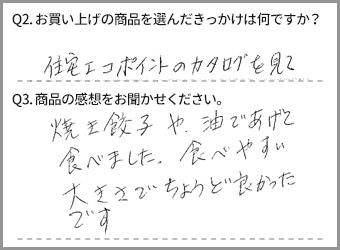 Q2. お買い上げの商品を選んだきっかけは何ですか？
住宅エコポイントのカタログを見て
Q3. 商品の感想をお聞かせください。
焼き餃子や、油であげて
食べました。食べやすい
大きさでちょうど良かった
です